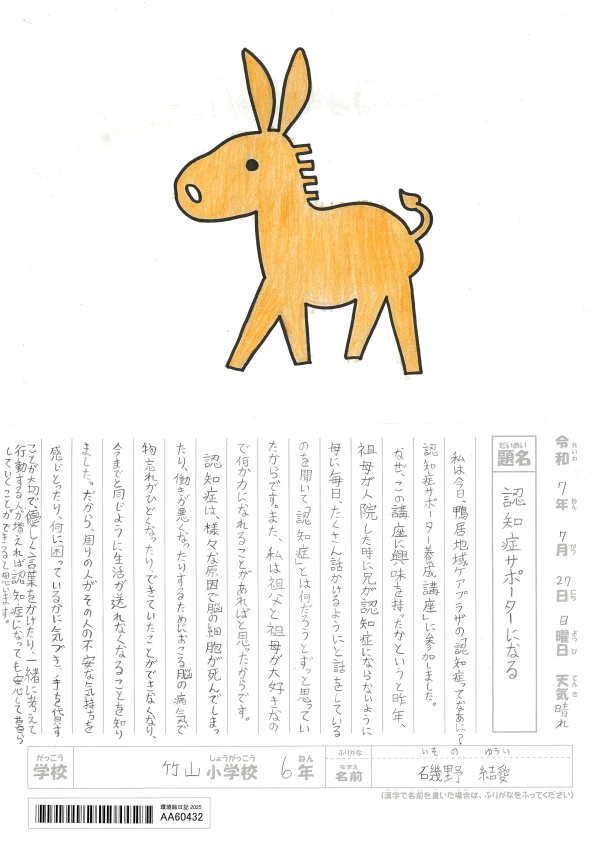 令和 7年 7月 27日 日曜日 天気 晴れ
れいわ ねん がつ にち ようび てんき
だいめい
題名 認知症サポーターになる
私は今日、鴨居地域ケアプラザの「認知症ってなあに？
認知症サポーター養成講座」に参加しました。
なぜ、この講座に興味を持ったかというと昨年、
祖母が入院した時に兄が認知症にならないように
母に毎日、たくさん話かけるようにと話をしている
のを聞いて「認知症」とは何だろうとずっと思ってい
たからです。また、私は祖父と祖母が大好きなの
で何か力になれることがあればと思ったからです。
認知症は、様々な原因で脳の細胞が死んでしまっ
たり、働きが悪くなったりするためにおこる脳の病気で
物忘れがひどくなったり、できていたことができなくなり、
今までと同じように生活が送れなくなることを知り
ました。だから、周りの人がその人の不安な気持ちを
感じとったり、何に困っているかに気づき、手を貸す
ことが大切で優しく言葉をかけたり、一緒に考えて
行動する人が増えれば認知症になっても安心して暮ら
していくことができると思います。
がっこう しょうがっこう ねん ふりがな いその ゆうい
学校 竹山 小学校 6年 なまえ 名前 磯野 結愛
(漢字で名前を書いた場合は、ふりがなをふってください)
環境絵日記 2025
AA60432